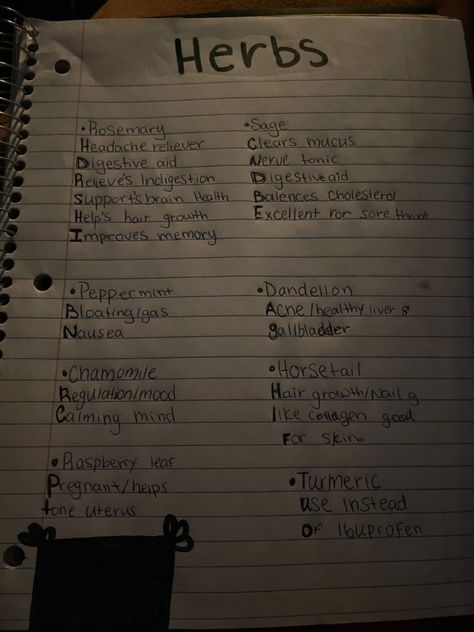 Herbs
•Rosemary
Headache reliever
Digestive aid
Relieve's Indigestion
Support's brain Health
Help's hair growth
Improves memory
•Sage
Clears mucus
Nerve tonic
Digestive aid
Balences Cholesterol
Excellent for sore throat
•Peppermint
Bloating/gas
Nausea
•Dandelion
Acne/healthy liver &
gallbladder
•Chamomile
Regulation/mood
Calming mind
•Horsetail
Hair growth/Nail g
like collagen good
For skin
•Raspberry leaf
Pregnant/helps
tone uterus
•Turmeric
use instead
of Ibuprofen